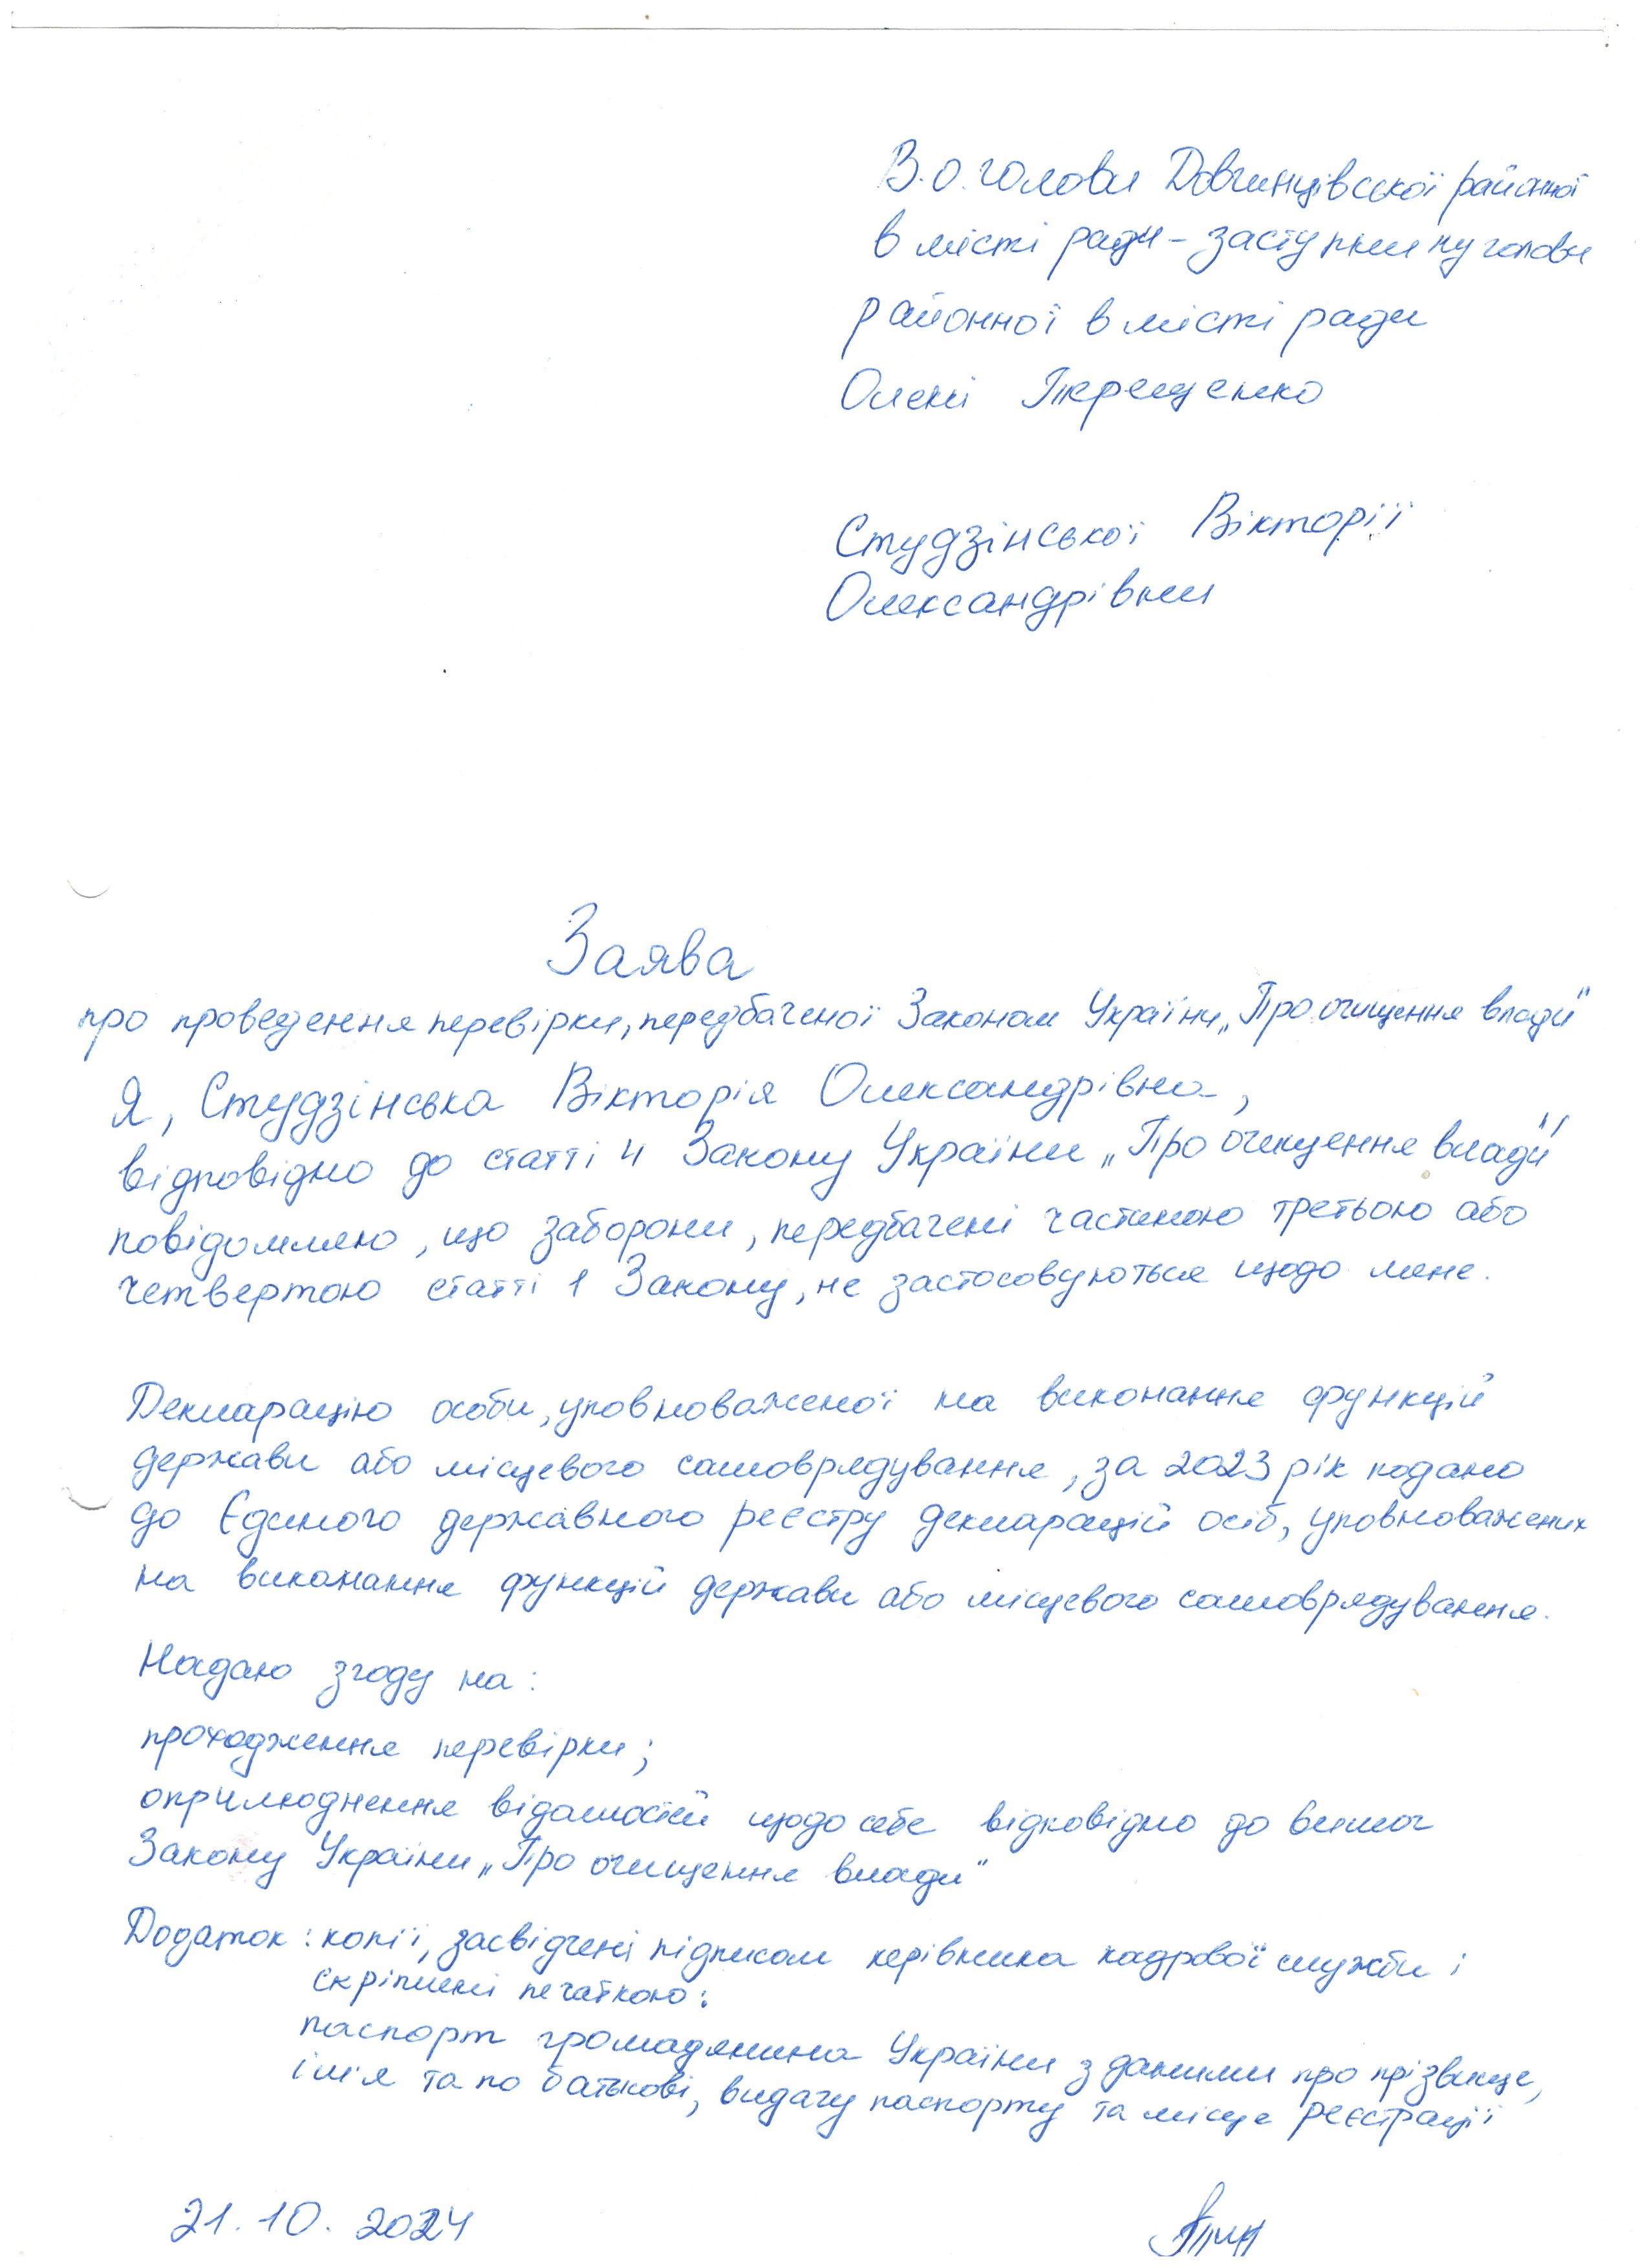 В.о.голови Довгинцівської районної
в місті ради - заступнику голови
районної в місті ради
Олені Терещенко
Студзінської Вікторії
Олександрівни
Заява
про проведення перевірки, передбаченої Законом України „Про очищення влади"
Я, Студзінська Вікторія Олександрівна,
відповідно до статті 4 Закону України „Про очищення влади"
повідомляю, що заборони, передбачені частиною третьою або
четвертою статті 1 Закону, не застосовуються щодо мене.
Декларацію особи, уповноваженої на виконання функцій
держави або місцевого самоврядування, за 2023 рік подано
до Єдиного державного реєстру декларацій осіб, уповноважених
на виконання функцій держави або місцевого самоврядування.
Надаю згоду на:
проходження перевірки;
оприлюднення відомостей щодо себе відповідно до вимог
Закону України „Про очищення влади"
Додаток: копії, засвідчені підписом керівника кадрової служби і
скріплені печаткою:
паспорт громадянина України з даними про прізвище,
ім'я та по батькові, видачу паспорту та місце реєстрації
21.10.2024